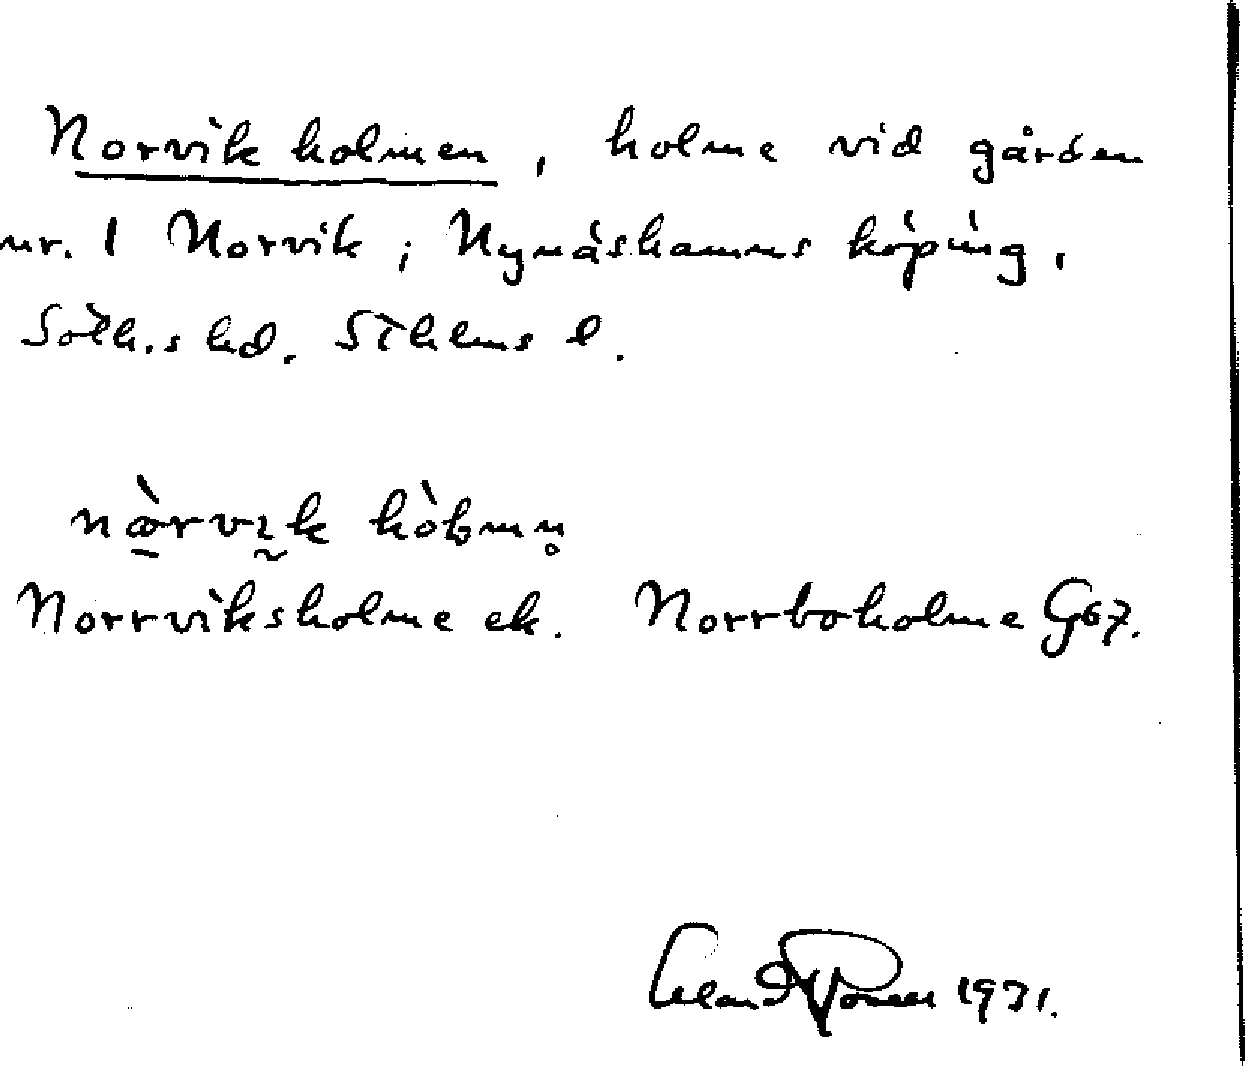 Norvik holmen, holme vid gården
nr. 1 Norvik; Nynäshamns köping,
Soth.s hd. Sthlms l.
Norrviksholme ek. Norrboholme G67.
1931.